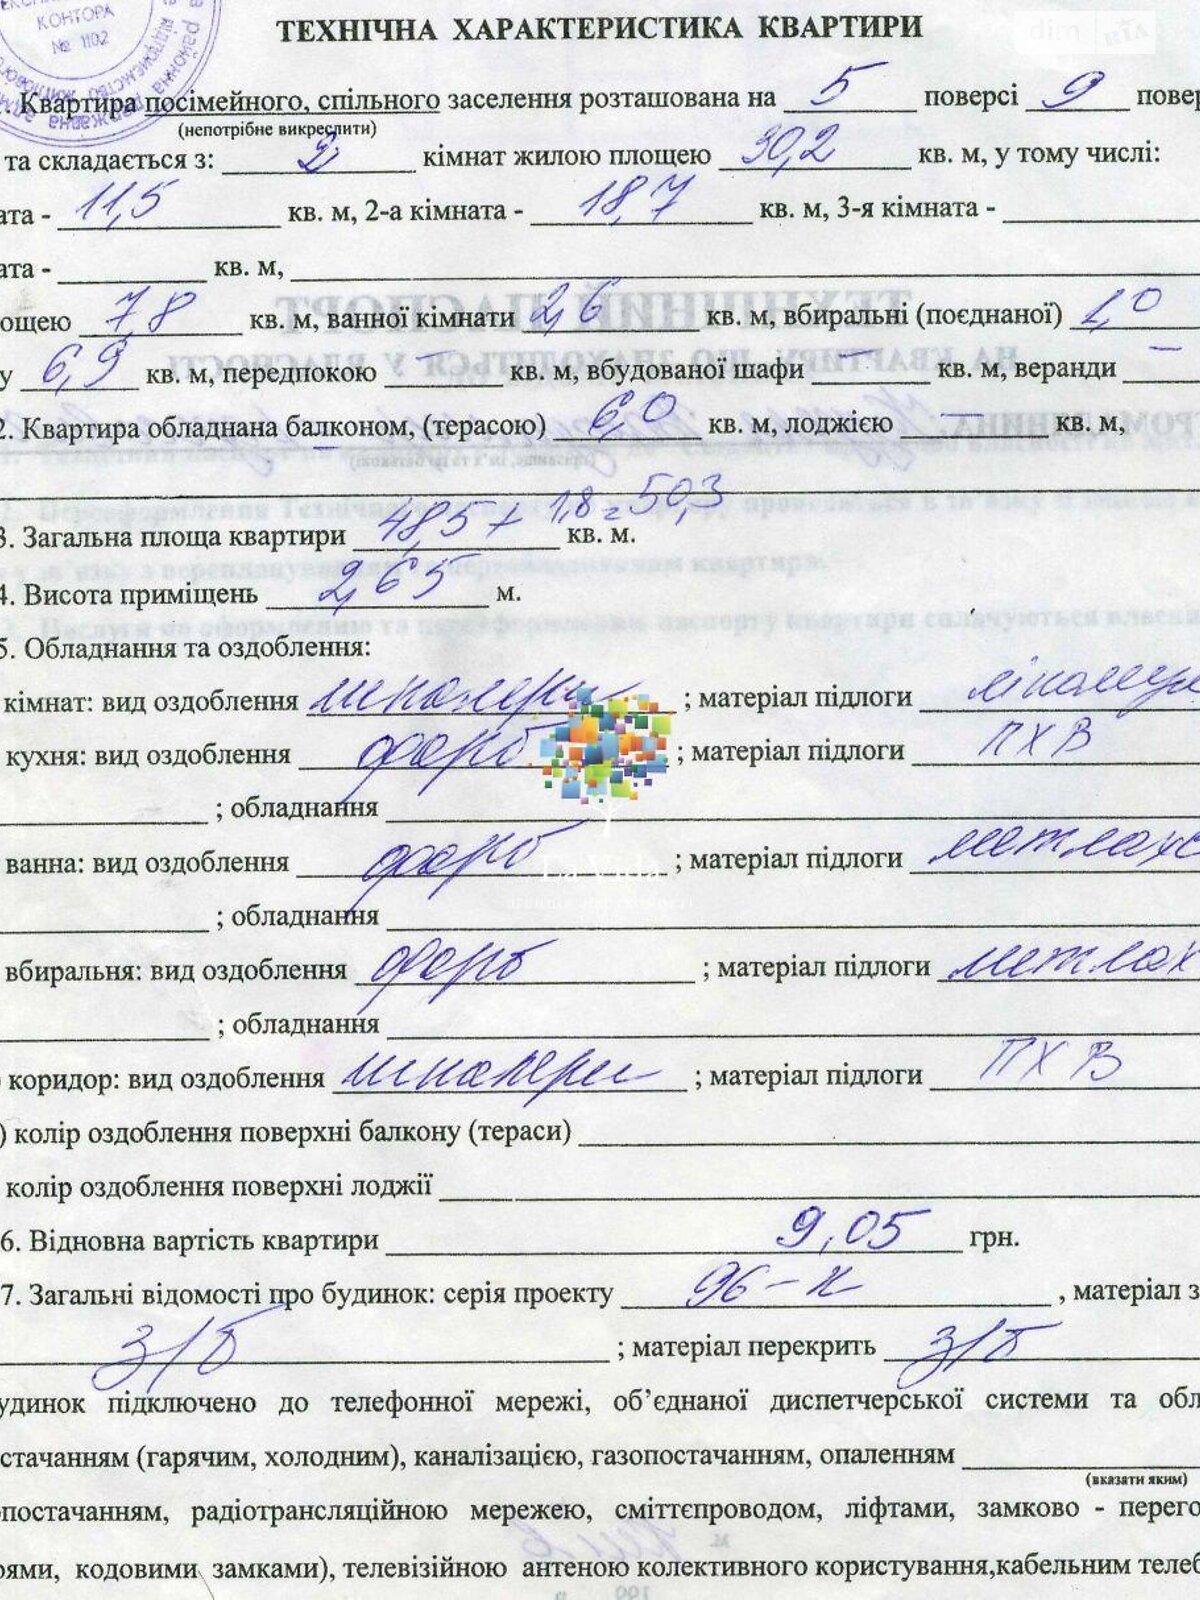 КОНТОРА
№ 1102
ТЕХНІЧНА ХАРАКТЕРИСТИКА КВАРТИРИ
Квартира посімейного, спільного заселення розташована на 5 поверсі 9 повер
(непотрібне викреслити)
та складається з: 2 кімнат жилою площею 30,2 кв. м, у тому числі:
ата - 11,5 кв. м, 2-а кімната - 18,7 кв. м, 3-я кімната -
ата - кв. м,
ощею 7,8 кв. м, ванної кімнати 2,6 кв. м, вбиральні (поєднаної) 1,0
у 6,9 кв. м, передпокою — кв. м, вбудованої шафи — кв. м, веранди —
2. Квартира обладнана балконом, (терасою) 6,0 кв. м, лоджією — кв. м,
3. Загальна площа квартири 48,5 + 1,8 = 50,3 кв. м.
4. Висота приміщень 2,65 м.
5. Обладнання та оздоблення:
кімнат: вид оздоблення шпалери ; матеріал підлоги
кухня: вид оздоблення фарб ; матеріал підлоги ПХВ
; обладнання
ванна: вид оздоблення фарб ; матеріал підлоги метлахс
; обладнання
вбиральня: вид оздоблення фарб ; матеріал підлоги метлах
; обладнання
коридор: вид оздоблення шпалери ; матеріал підлоги ПХВ
) колір оздоблення поверхні балкону (тераси)
колір оздоблення поверхні лоджії
6. Відновна вартість квартири 9,05 грн.
7. Загальні відомості про будинок: серія проекту 96-к , матеріал з
з/б ; матеріал перекрить з/б
удинок підключено до телефонної мережі, об’єднаної диспетчерської системи та обл
стачанням (гарячим, холодним), каналізацією, газопостачанням, опаленням
(вказати яким)
опостачанням, радіотрансляційною мережею, сміттєпроводом, ліфтами, замково - перего
рями, кодовими замками), телевізійною антеною колективного користування,кабельним телеб